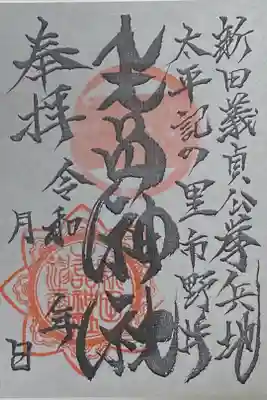 新田義貞公挙兵地
太平記の里 市野井
生品神社
奉拝
令和 年
月 日